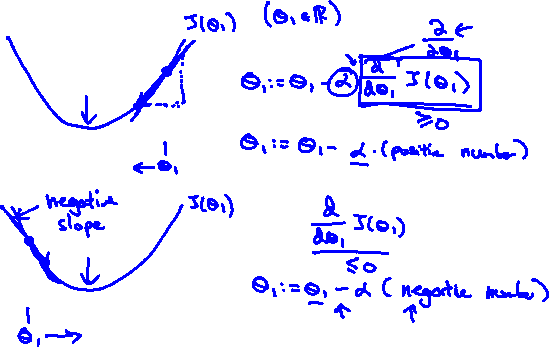 J(θ₁) (θ₁ ∈ ℝ)
∂/∂θ₁ ←
θ₁ := θ₁ - α d/dθ₁ J(θ₁)
≥ 0
θ₁ := θ₁ - α · (positive number)
← θ₁
negative slope
J(θ₁)
d/dθ₁ J(θ₁)
≤ 0
θ₁ := θ₁ - α (negative number)
θ₁ →